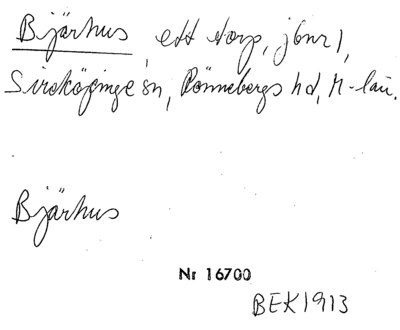 Bjärhus, ett torp, jbnr 1,
Sireköpinge sn, Rönnebergs hd, M-län.
Bjärhus
Nr 16700
BEK 1913